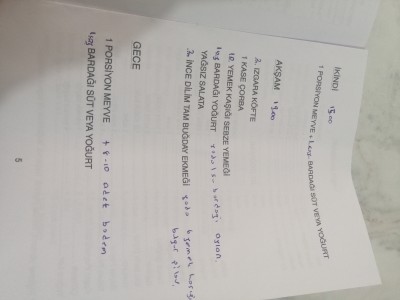 İKİNDİ 15.00
1 PORSİYON MEYVE + 1 çay BARDAĞI SÜT VEYA YOĞURT
AKŞAM 19.00
2 IZGARA KÖFTE
1 KASE ÇORBA
10 YEMEK KAŞIĞI SEBZE YEMEĞI
1 çay BARDAĞI YOĞURT yada 1 su bardağı ayran
YAĞSIZ SALATA
2 İNCE DİLİM TAM BUĞDAY EKMEĞİ yada 6 yemek kaşığı
bulgur pilavı.
GECE
1 PORSİYON MEYVE + 8-10 adet badem
1 çay BARDAĞI SÜT VEYA YOĞURT
5